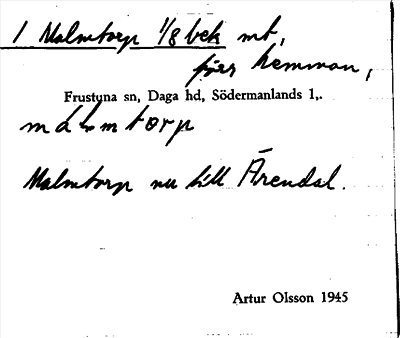 1 Malmtorp 1/8 bek mt,
förr hemman,
Frustuna sn, Daga hd, Södermanlands l,.
malmtorp
Malmtorp nu till Ärendal.
Artur Olsson 1945